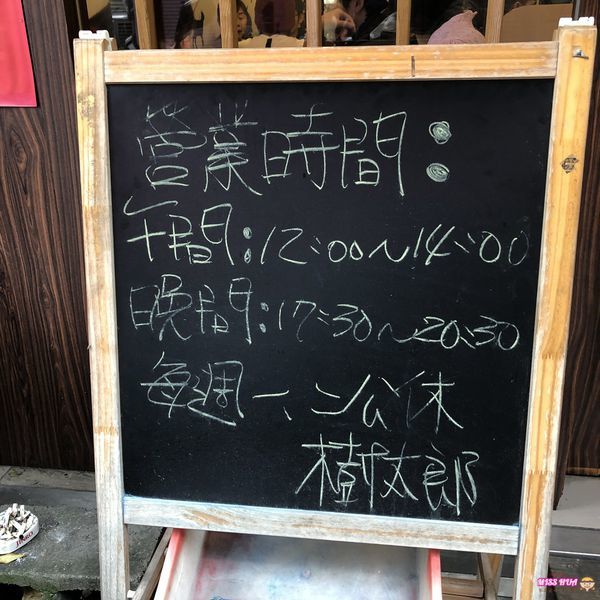 營業時間:
午間:12:00~14:00
晚間:17:30~20:30
每週一、二公休
樹太郎
MISS HUA